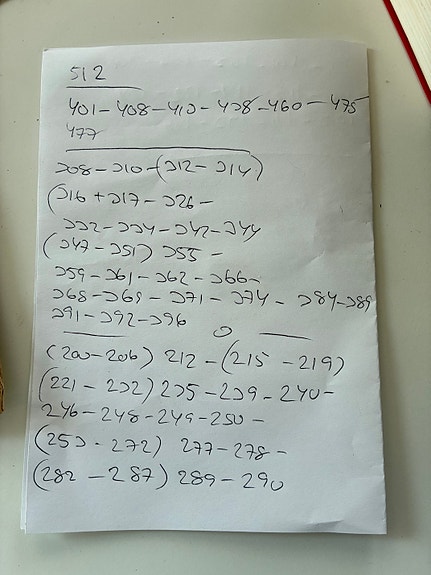 512
401-408-413-438-460-475
477
308-310-(312-314)
(316+317-326-
332-334-342-344
(347-351) 355-
359-361-362-366-
368-369-371-374-384-389
391-392-396
(200-206) 212-(215-219)
(221-232) 235-239-240-
246-248-249-250-
(253-272) 277-278-
(282-287) 289-290